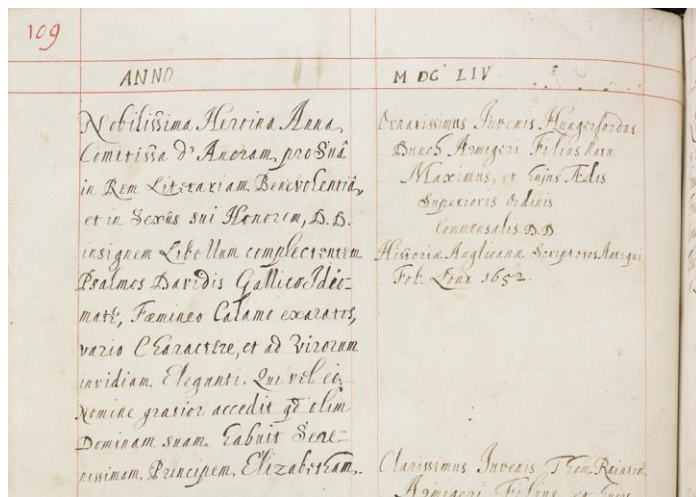 109
ANNO
Nobilissima Heroina Anna,
Comitissa d'Anoram, pro Suâ
in Rem Literariam Benevolentiâ,
et in Sexûs sui Honorem, D.D.
insignem Libellum complectentem
Psalmos Davidis Gallico Idio-
mate, Fæmineo Calamo exaratos,
vario Charactere, et ad Virorum
invidiam Eleganti. Qui vel eo
Nomine gratior accedit qd olim
Dominam suam habuit Sere-
nissimam Principem Elizabetham.
M DC LIV
Ornatissimus Juvenis Hungerfordus
Dunch Armigeri Filius Natu
Maximus, et hujus Ædis
Superioris Ordinis
Commensalis D.D.
Historiæ Anglicanæ Scriptores Antiqui
Fol. Lond 1652.
Clarissimus Juvenis Thom
Armigeri Filius et